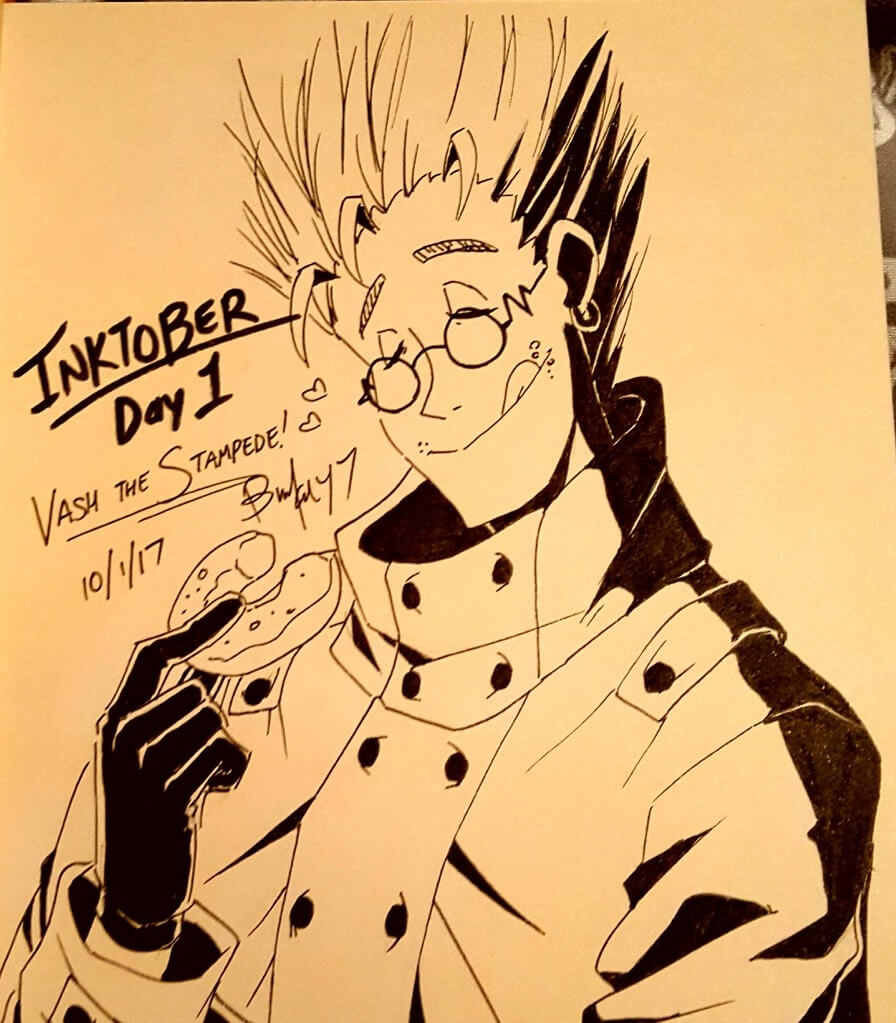 INKTOBER
Day 1
VASH THE STAMPEDE!
10/1/17